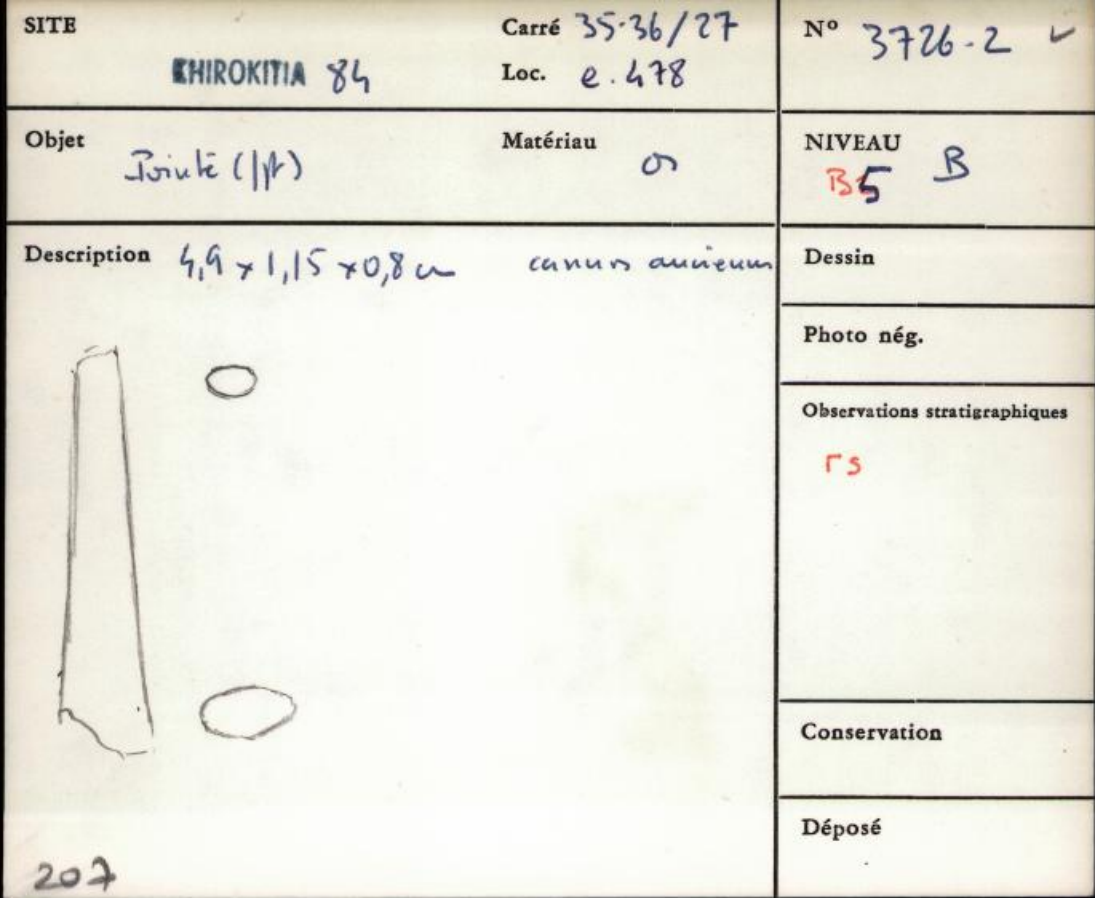 SITE
KHIROKITIA 84
Carré 35-36/27
Loc. e. 478
N° 3726-2
Objet
Pointe (fgt)
Matériau
os
NIVEAU
B5 B
Description 4,9 x 1,15 x 0,8 cm
Dessin
Photo nég.
Observations stratigraphiques
rs
Conservation
Déposé
207